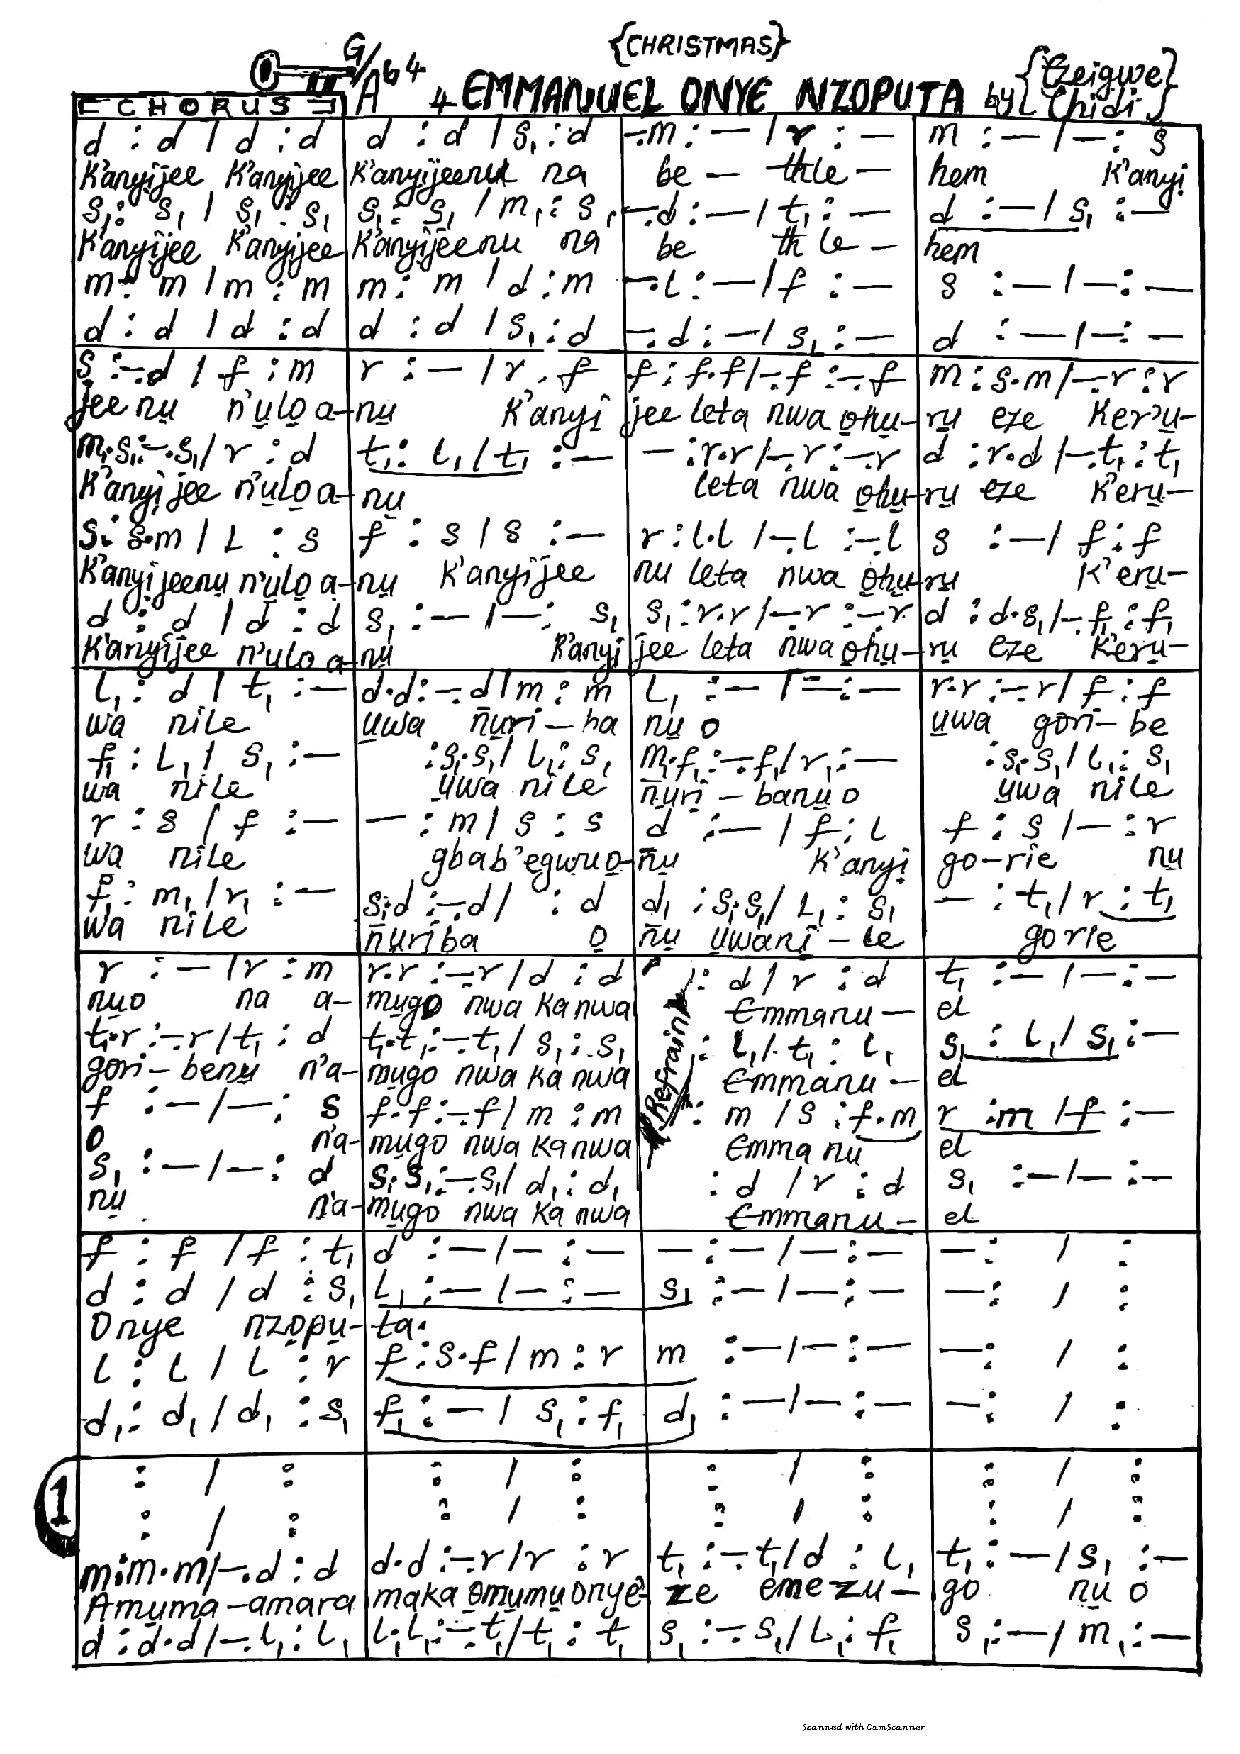 {CHRISTMAS}
G/Ab 4 4 EMMANUEL ONYE NZOPUTA by {Ezeigwe Chidi}
CHORUS
d : d / d : d | d : d / s₁ : d | -.m : — / r : — | m : — / — : s
K'anyijee K'anyijee | K'anyijeenu na | be — thle — | hem K'anyi
s₁ : s₁ / s₁ : s₁ | s₁ : s₁ / m₁ : s₁ | -.d : — / t₁ : — | d : — / s₁ : —
K'anyijee K'anyijee | K'anyijeenu na | be thle — | hem
m : m / m : m | m : m / d : m | -.l : — / f : — | s : — / — : —
d : d / d : d | d : d / s₁ : d | -.d : — / s₁ : — | d : — / — : —
s : -.d / f : m | r : — / r . f | f : f.f / -.f : -.f | m : s.m / -.r : r
jee nụ n'ụlọ a- | nụ K'anyi | jee leta nwa ọhụ- | rụ eze Ker'ụ-
m.s₁ : -.s₁ / r : d | t₁ : l₁ / t₁ : — | — : r.r / -.r : -.r | d : r.d / -.t₁ : t₁
K'anyi jee n'ụlọ a- | nụ | leta nwa ọhụ- | rụ eze K'erụ-
s : s.m / l : s | f : s / s : — | r : l.l / -.l : -.l | s : — / f : f
K'anyijeenụ n'ụlọ a- | nụ K'anyijee | nu leta nwa ọhụ- | rụ K'eru-
d : d / d : d | s₁ : — / — : s₁ | s₁ : r.r / -.r : -.r | d : d.s₁ / -.f₁ : f₁
K'anyijee n'ụlọ a- | nụ K'anyi | jee leta nwa ọhụ- | rụ eze K'erụ-
l₁ : d / t₁ : — | d.d : -.d / m : m | l₁ : — / — : — | r.r : -.r / f : f
wa nile | ụwa ñụri — ba | nụ o | ụwa gori — be
f₁ : l₁ / s₁ : — | : s₁.s₁ / l₁ : s₁ | m₁.f₁ : -.f₁ / r₁ : — | : s₁.s₁ / l₁ : s₁
wa nile | ụwa nile | ñụri — banụ o | ụwa nile
r : s / f : — | — : m / s : s | d : — / f : l | f : s / — : r
wa nile | gbab'egwuọ- | ñụ K'anyị | go-rie nụ
f₁ : m₁ / r₁ : — | s₁.d : -.d / : d | d₁ : s₁.s₁ / l₁ : s₁ | — : t₁ / r : t₁
wa nile | ñụriba ọ | ñụ ụwanị — le | gorie
r : — / r : m | r.r : -.r / d : d | : d / r : d | t₁ : — / — : —
nụo na a- | mụgo nwa ka nwa | Emmanu — | el
Refrain
t₁.r : -.r / t₁ : d | t₁.t₁ : -.t₁ / s₁ : s₁ | : l₁ / t₁ : l₁ | s₁ : l₁ / s₁ : —
gori — benụ n'a- | mụgo nwa ka nwa | Emmanu — | el
f : — / — : s | f.f : -.f / m : m | : m / s : f.m | r : m / f : —
o n'a- | mụgo nwa ka nwa | Emma nu | el
s₁ : — / — : d | s₁.s₁ : -.s₁ / d₁ : d₁ | : d / r : d | s₁ : — / — : —
nụ n'a- | mụgo nwa ka nwa | Emmanu — | el
f : f / f : t₁ | d : — / — : — | — : — / — : — | — : / :
d : d / d : s₁ | l₁ : — / — : — | s₁ : — / — : — | — : / :
Onye nzọpụ- | ta.
l : l / l : r | f : s.f / m : r | m : — / — : — | — : / :
d₁ : d₁ / d₁ : s₁ | f₁ : — / s₁ : f₁ | d₁ : — / — : — | — : / :
1
: / : | : / : | : / : | : / :
: / : | : / : | : / : | : / :
m : m.m / -.d : d | d.d : -.r / r : r | t₁ : -.t₁ / d : l₁ | t₁ : — / s₁ : —
Amụma-amara | maka ọmụmụ onye- | ze emezu — | go nụ o
d : d.d / -.l₁ : l₁ | l₁.l₁ : -.t₁ / t₁ : t₁ | s₁ : -.s₁ / l₁ : f₁ | s₁ : — / m₁ : —
Scanned with CamScanner